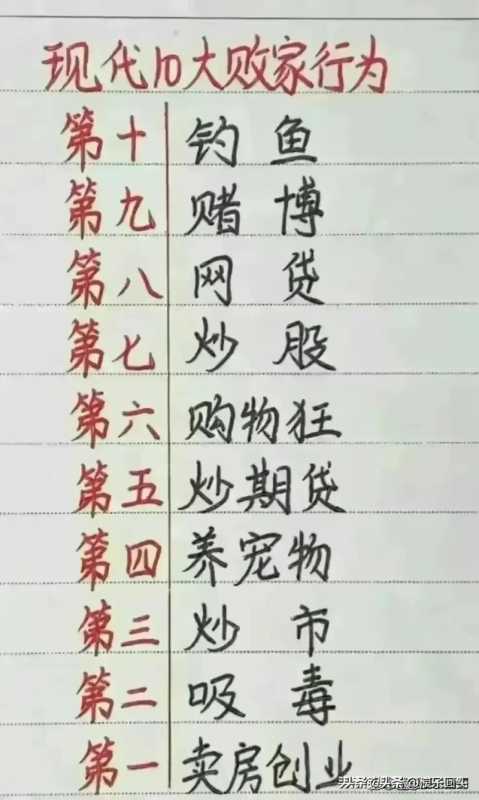 现代10大败家行为
第十 钓鱼
第九 赌博
第八 网贷
第七 炒股
第六 购物狂
第五 炒期贷
第四 养宠物
第三 炒市
第二 吸毒
第一 卖房创业
头条@头条@娱乐画英